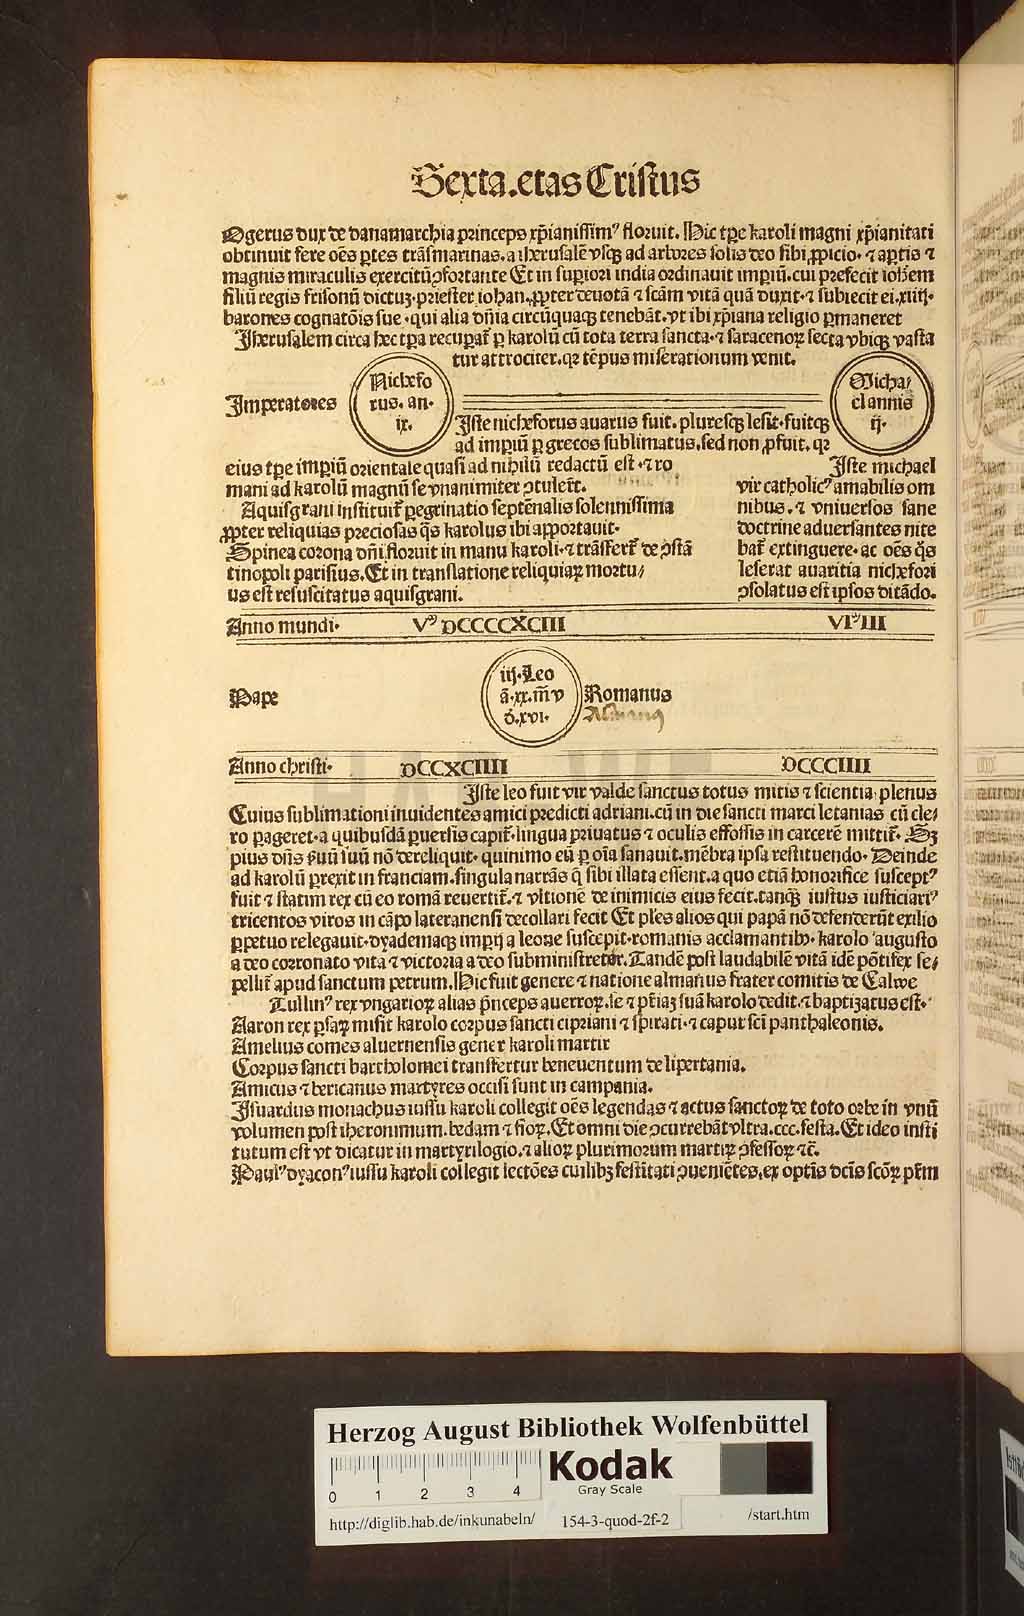 Sexta.etas Cristus
Ogerus dux de danamarchia princeps xp̄ianissim⁹ floruit. Hic tp̄e karoli magni xp̄ianitati
obtinuit fere oēs ꝑtes trāsmarinas. a iherusalē vsqꝫ ad arbores solis deo sibi ꝓpicio· ⁊ aptis ⁊
magnis miraculis exercitū ꝯfortante Et in supiori india ordinauit impiū. cui prefecit ioh̄em
filiū regis frisonū dictuꝫ· priester iohan. ꝓpter deuotā ⁊ scām vitā quā duxit· ⁊ subiecit ei .xiiij·
barones cognatōis sue· qui alia dn̄ia circūquaqꝫ tenebāt. vt ibi xp̄iana religio ꝑmaneret
Iherusalem circa hec tp̄a recuꝑat̄ ꝑ karolū cū tota terra sancta· ⁊ saracenoꝝ secta vbiqꝫ vasta
tur attrociter. qꝛ tēpus miserationum venit.
Imperatores
Nichefo
rus. an·
ix.
Micha
el annis
ij·
Iste nicheforus auarus fuit. pluresqꝫ lesit· fuitqꝫ
ad impiū ꝑ grecos sublimatus. sed non ꝓfuit. qꝛ
eius tp̄e impiū orientale quasi ad nihilū redactū est· ⁊ ro
mani ad karolū magnū se vnanimiter ꝯtulert̄.
Aquisgrani instituit̄ ꝑegrinatio septēnalis solennissima
ꝓpter reliquias preciosas q̄s karolus ibi apportauit·
Spinea corona dn̄i floruit in manu karoli· ⁊ trāsfert̄ de ꝯstā
tinopoli parisius. Et in translatione reliquiaꝝ mortu/
us est resuscitatus aquisgrani.
Iste michael
vir catholic⁹ amabilis om
nibus. ⁊ vniuersos sane
doctrine aduersantes nite
bat̄ extinguere· ac oēs q̄s
leserat auaritia nichefori
ꝯsolatus est ipsos ditādo.
Anno mundi· V⁹ DCCCCXCIII VI⁹III
Pape
iij· Leo
ā. xx. m̄ v
d̄. xvi·
Romanus
Anno christi· DCCXCIIII DCCCIIII
Iste leo fuit vir valde sanctus totus mitis ⁊ scientia plenus
Cuius sublimationi inuidentes amici predicti adriani. cū in die sancti marci letanias cū cle/
ro ꝑageret· a quibusdā ꝑuersis capit̄· lingua priuatus ⁊ oculis effossis in carcerē mittit̄· Sꝫ
pius dn̄s ẜuū suū nō dereliquit· quinimo eū ꝑ oīa sanauit. mēbra ipsa restituendo· Deinde
ad karolū ꝑrexit in franciam. singula narrās q̄ sibi illata essent. a quo etiā honorifice suscept⁹
fuit ⁊ statim rex cū eo romā reuertit̄. ⁊ vltionē de inimicis eius fecit. tanqꝫ iustus iusticiari⁹
tricentos viros in cāpo lateranensi decollari fecit Et ples alios qui papā nō defenderūt exilio
ꝑpetuo relegauit· dyademaqꝫ impij a leone suscepit· romanis acclamantibꝫ· karolo augusto
a deo corronato vita ⁊ victoria a deo subministretur. Tandē post laudabilē vitā idē pōtifex se/
pellit̄ apud sanctum petrum. Hic fuit genere ⁊ natione almanus frater comitis de Calwe
Tullin⁹ rex vngarioꝝ alias pn̄ceps auerroꝝ. se ⁊ pr̄iaꝫ suā karolo dedit. ⁊ baptizatus est·
Aaron rex ꝑsaꝝ misit karolo corpus sancti cipriani ⁊ spirati· ⁊ caput scī panthaleonis.
Amelius comes aluernensis gener karoli martir
Corpus sancti bartholomei transfertur beneuentum de lipertania.
Amicus ⁊ bericanus martyres occisi sunt in campania.
Isuardus monachus iussu karoli collegit oēs legendas ⁊ actus sanctoꝝ de toto orbe in vnū
volumen post iheronimum. bedam ⁊ floꝝ. Et omni die ꝯcurrebāt vltra .ccc. festa. Et ideo insti
tutum est vt dicatur in martyrilogio. ⁊ alioꝝ plurimorum martiꝝ ꝯfessoꝝ ⁊c̄.
Paul⁹ dyacon⁹ iussu karoli collegit lectōes cuilibꝫ festitati ꝯueniētes. ex optīs dcīs scōꝝ pr̄m
Herzog August Bibliothek Wolfenbüttel
0 1 2 3 4
Kodak
Gray Scale
http://diglib.hab.de/inkunabeln/ 154-3-quod-2f-2 /start.htm